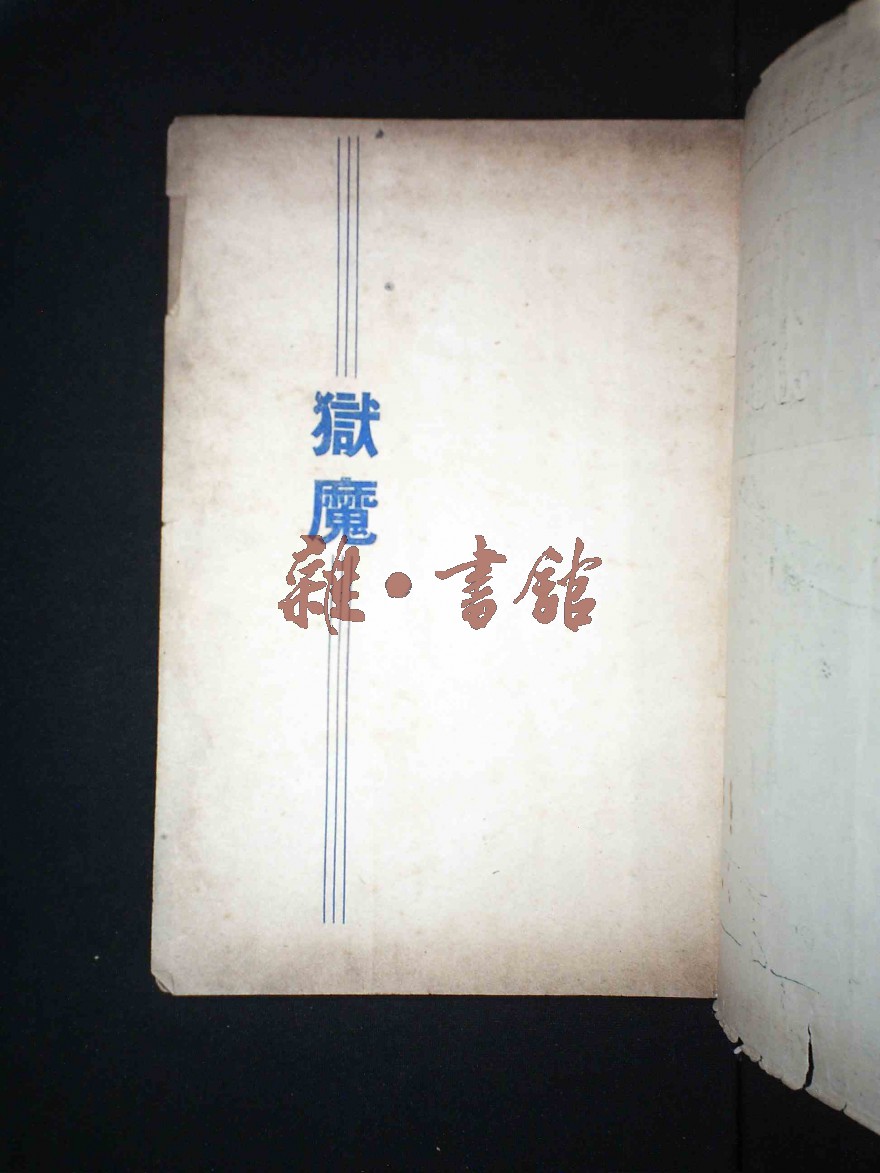 獄魔
雜·書館